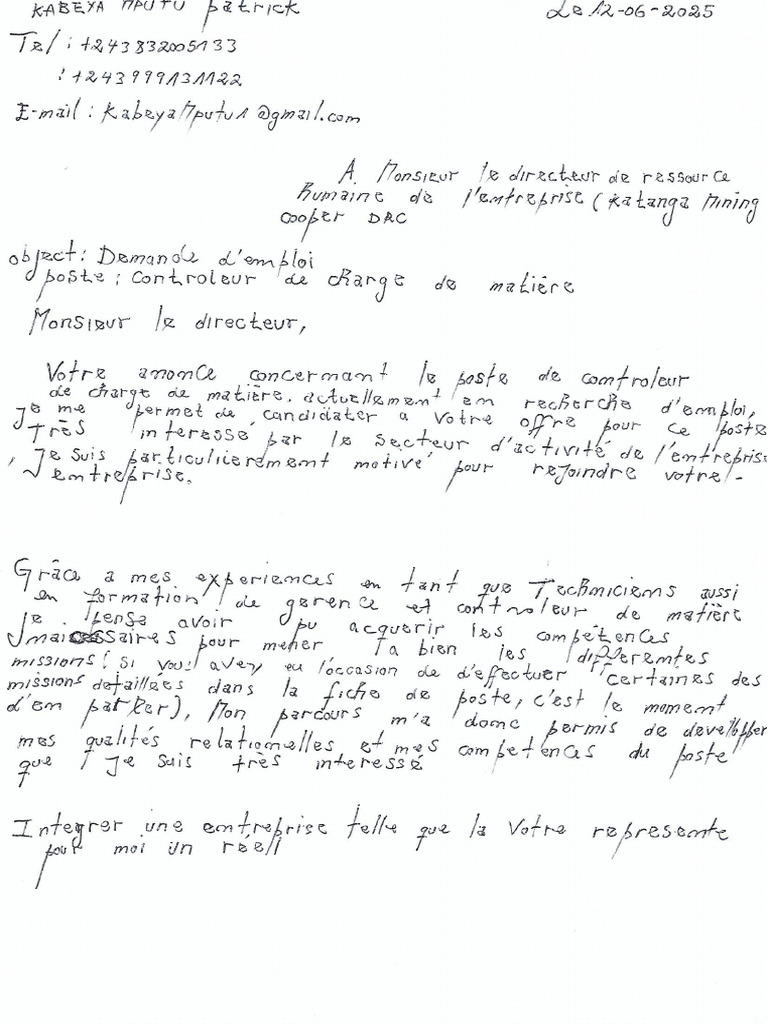 KABEYA MPUTU Patrick
Le 12-06-2025
Tel : +243832005133
: +243999131122
E-mail : KabeyaMputu1@gmail.com
A Monsieur le directeur de ressource
Humaine de l'entreprise (Katanga Mining
cooper DRC
object : Demande d'emploi
poste : Controleur de charge de matière
Monsieur le directeur,
Votre anonce concernant le poste de controleur
de charge de matière. actuellement en recherche d'emploi,
Je me permet de candidater a votre offre pour ce poste
Très interessé par le secteur d'activité de l'entreprise
, Je suis particuliierement motivé pour rejoindre votre -
entreprise.
Grâce a mes experiences en tant que Techniciens aussi
en formation de gerence et controleur de matière
Je pense avoir pu acquerir les compétences
pour mener a bien les differentes
missions! Si vous avez eu l'occasion de d'effectuer certaines des
missions detaillées dans la fiche de poste, c'est le moment
d'em parler), Mon parcours m'a donc permis de develloper
mes qualités relationelles et mes competences du poste
que Je suis très interessé
Integrer une entreprise telle que la Votre represente
pour moi un reell